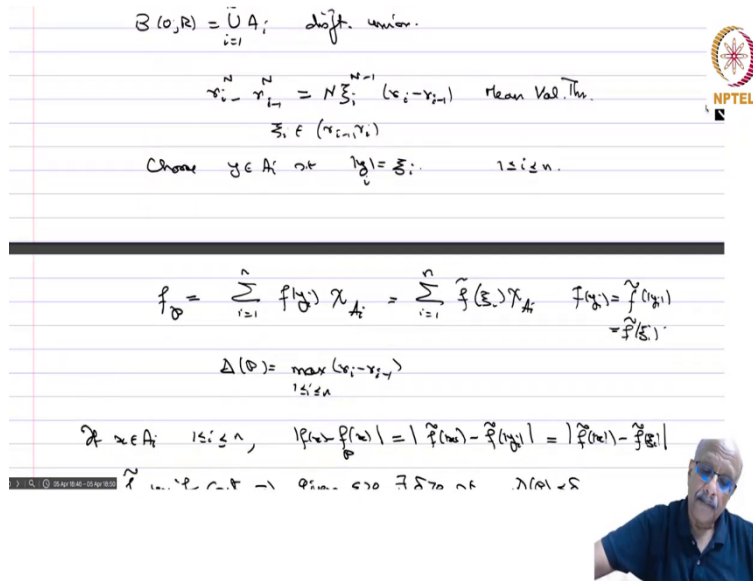 B(0;R) = ∪_{i=1}^{n} A_i disjt. union.
r_i^N - r_{i-1}^N = N ξ_i^{N-1} (r_i - r_{i-1}) Mean Val. Thm.
ξ_i ∈ (r_{i-1}, r_i)
NPTEL
Choose y_i ∈ A_i s.t. |y_i| = ξ_i. 1≤i≤n.
f_𝒫 = Σ_{i=1}^{n} f(y_i) χ_{A_i} = Σ_{i=1}^{n} f̃(ξ_i) χ_{A_i} f(y_i) = f̃(|y_i|)
= f̃(ξ_i).
Δ(𝒫) = max_{1≤i≤n} (r_i - r_{i-1})
If x∈A_i 1≤i≤n, |f(x) - f_𝒫(x)| = |f̃(|x|) - f̃(|y_i|)| = |f̃(|x|) - f̃(ξ_i)|
05 Apr 18:46 - 05 Apr 18:50
f̃ unif. cont ⇒ Given ε>0 ∃ δ>0 s.t. Δ(𝒫) < δ